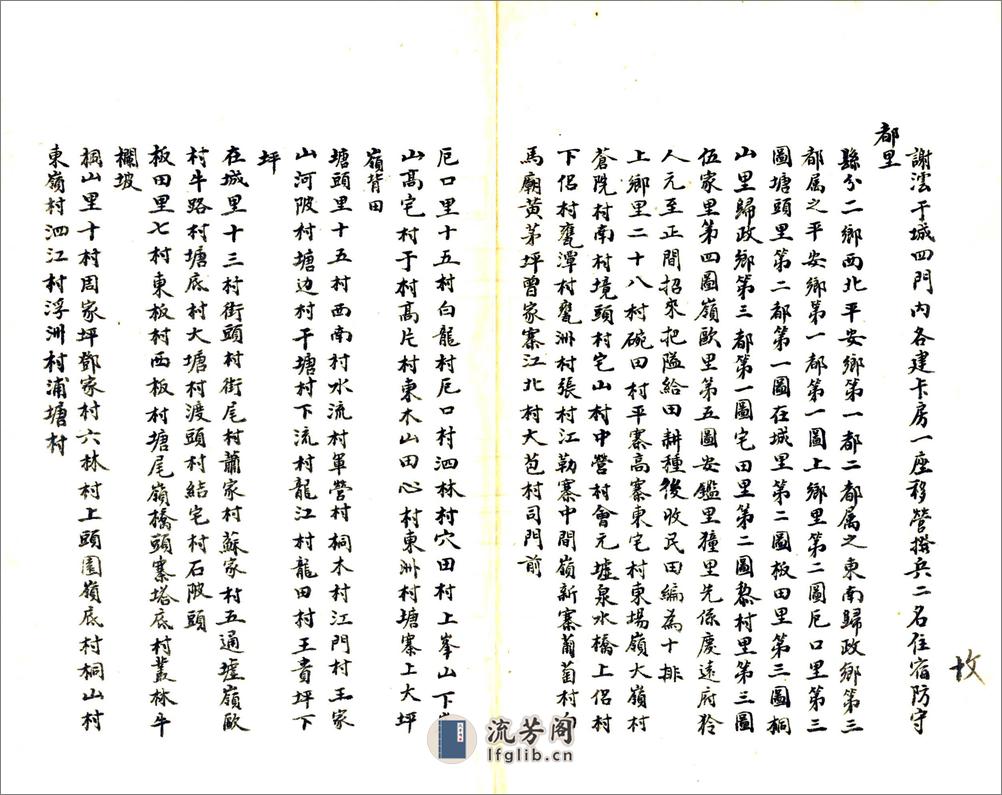 謝澐于城四門內各建卡房一座移營撥兵二名住宿防守
都里
縣分二鄉西北平安鄉第一都二都属之東南歸政鄉第三
都属之平安鄉第一都第一圖上鄉里第二圖厄口里第三
圖塘頭里第二都第一圖在城里第二圖板田里第三圖桐
山里歸政鄉第三都第一圖宅田里第二圖黎村里第三圖
伍家里第四圖嶺歐里第五圖安鑑里獞里先係慶遠府狑
人元至正間招來把隘給田耕種後收民田編為十排
上鄉里二十八村碗田村平寨高寨東宅村東塲嶺大嶺村
蒼㳈村南村境頭村宅山村中營村會元墟泉水橋上侣村
下侣村甕潭村甕洲村張村江勒寨中間嶺新寨葡萄村
馬廟黃茅坪曾家寨江北村大芭村司門前
厄口里十五村白龍村厄口村泗林村穴田村上峯山下
山髙宅村于村髙片村東木山田心村東洲村塘寨上大坪
嶺背田
塘頭里十五村西南村水流村軍營村桐木村江門村王家
山河陂村塘边村干塘村下流村龍江村龍田村王貴坪下
坪
在城里十三村街頭村街尾村蕭家村蘇家村五通墟嶺歐
村牛路村塘底村大塘村渡頭村結宅村石陂頭
板田里七村東板村西板村塘尾嶺橋頭寨塔底村叢林牛
欄坡
桐山里十村周家坪鄧家村六林村上頭園嶺底村桐山村
東嶺村泗江村浮洲村浦塘村
流芳阁
lfglib.cn